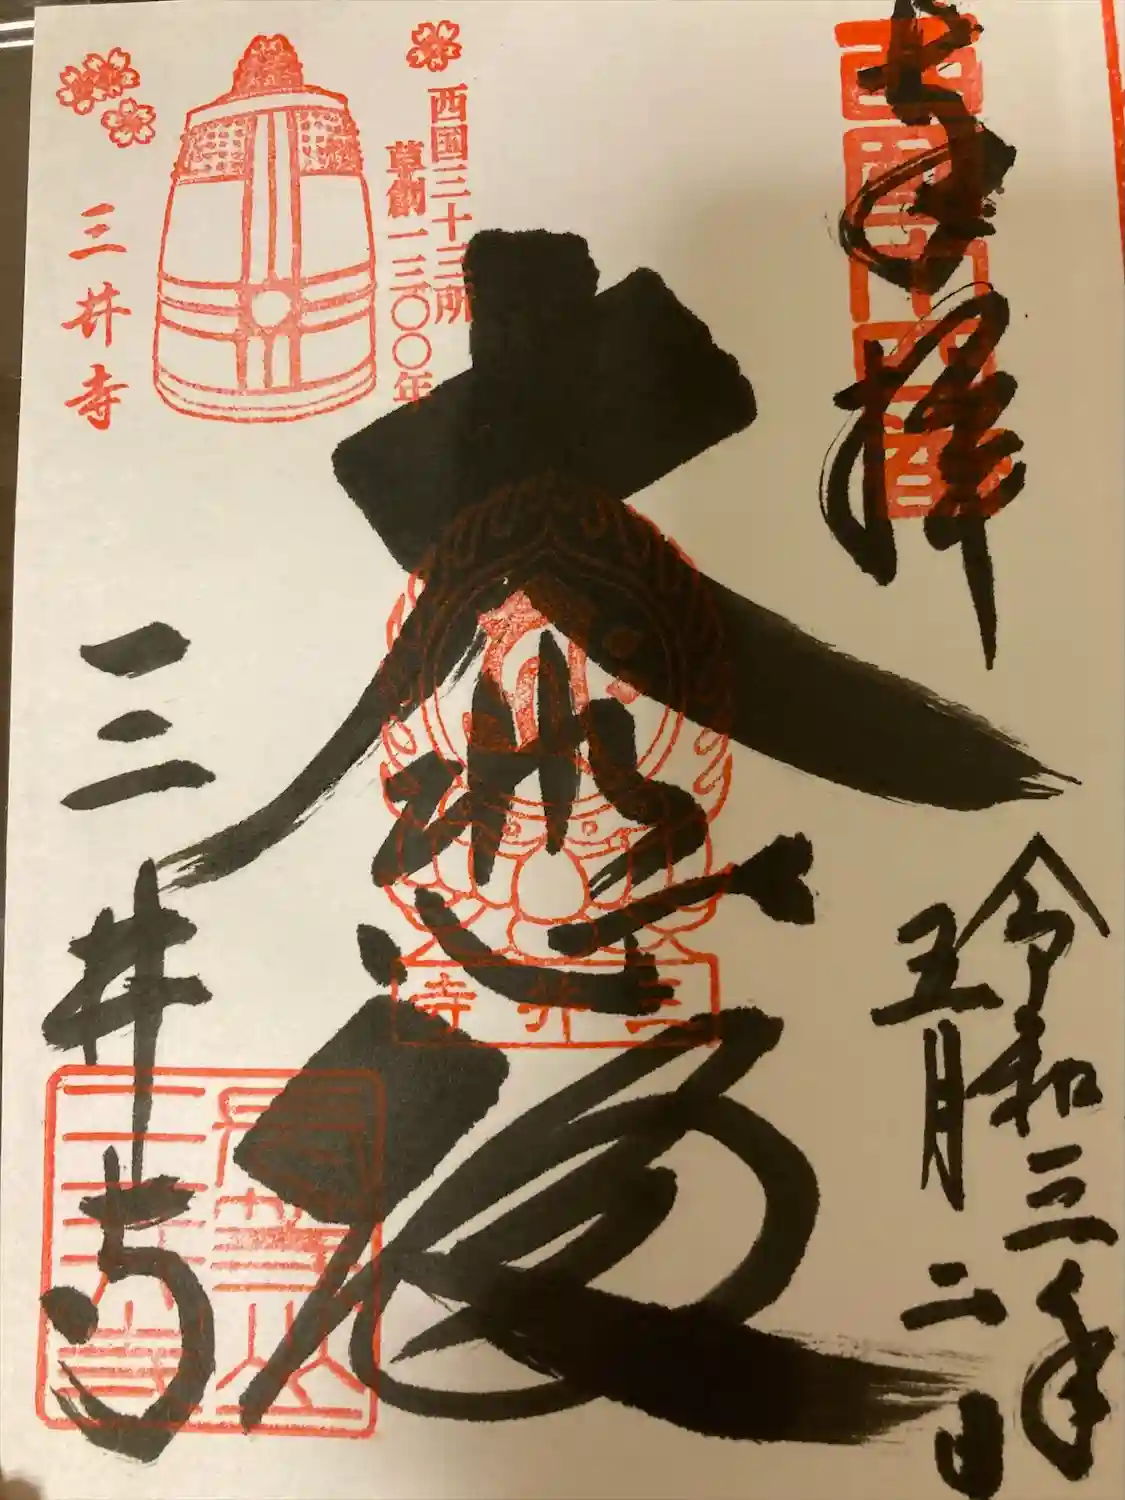 奉拝
西国十四番
令和三年
五月二日
大悲殿
西国三十三所
草創一三〇〇年
三井寺
三井寺
三井寺